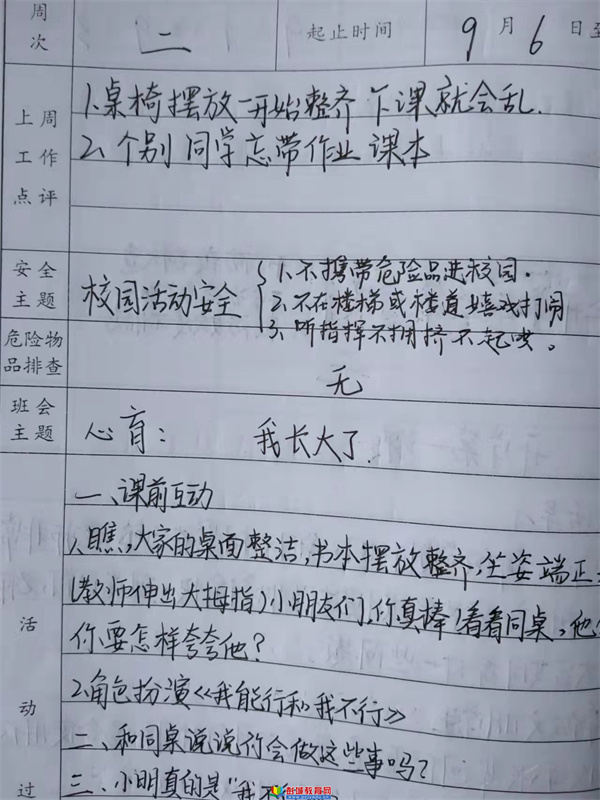 周次 二 起止时间 9月6日至
上周工作点评
1.桌椅摆放一开始整齐下课就会乱.
2、个别同学忘带作业课本
安全主题
校园活动安全
1.不携带危险品进校园.
2、不在楼梯或楼道嬉戏打闹
3、听指挥不拥挤不起哄。
危险物品排查 无
班会主题 心育： 我长大了.
活动过
一、课前互动
1、瞧,大家的桌面整洁,书本摆放整齐,坐姿端正
(教师伸出大拇指)小朋友们,你真棒!看看同桌,他
你要怎样夸夸他?
2.角色扮演《我能行和我不行》
二、和同桌说说你会做这些事吗?
三、小明真的是"我不
教育网